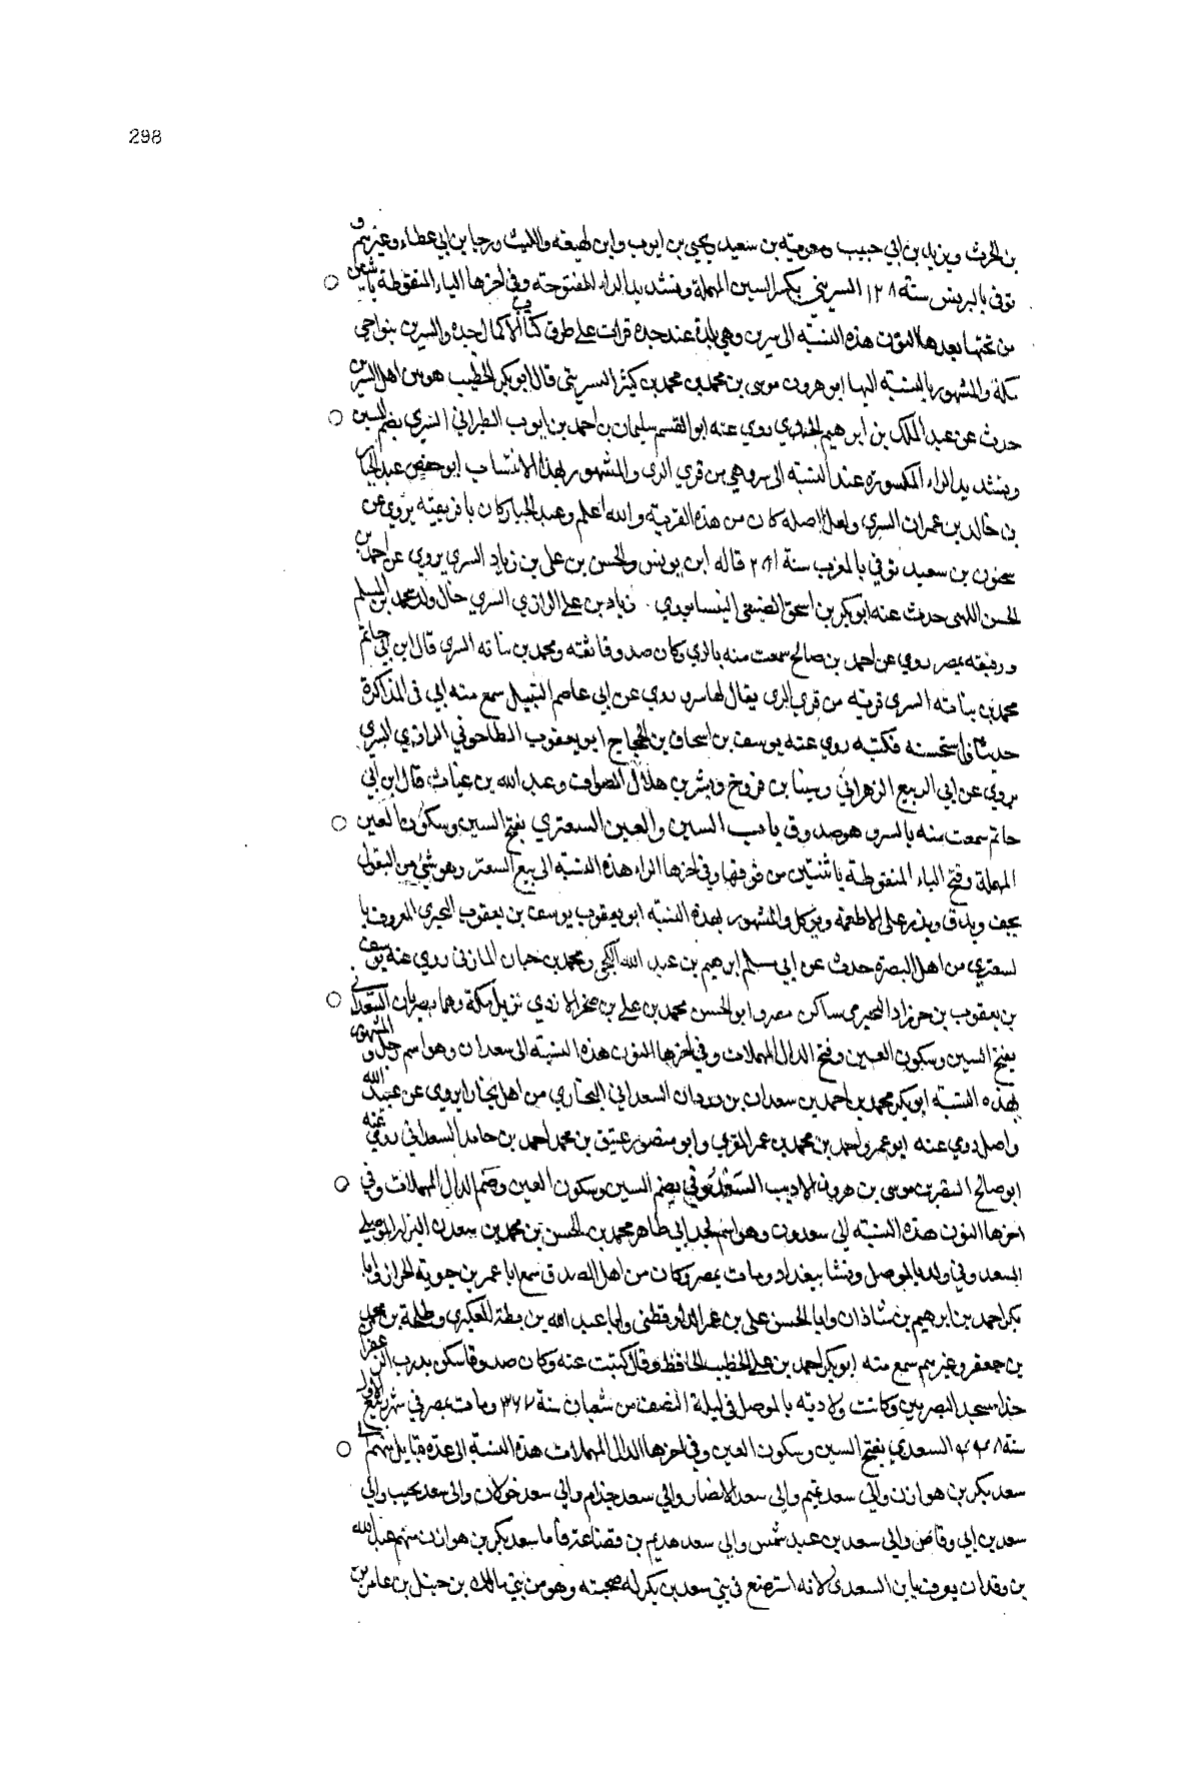 298
بن الحرث ويزيد بن ابي حبيب ومعوية بن سعيد ويحيى بن ايوب وابن لهيعة والليث ورجا بن ابي عطاء وغيرهم و
توفي بالبرلس سنة ١٢٨ السريني بكسر السين المهملة وتشديد الراء المفتوحة وفي اخرها الياء المنقوطة باثنين
من تحتها بعدها النون هذه النسبة الى سرين وهي بلدة عند جدة قرات على طرف كتاب الاكمال جده والسرين بنواحي
مكة والمشهور بالنسبة اليها ابو هرون موسى بن محمد بن محمد بن كثير السريني قال ابو بكر الخطيب هو من اهل السرين
حدث عن عبد الملك بن ابرهيم الجدي روي عنه ابو القسم سليمان بن احمد بن ايوب الطبراني السري بضم السين
وتشديد الراء المكسورة عند النسبة الى سر وهي من قري الري والمشهور بهذا الانتساب ابو حفص عبد الجبار
بن خالد بن عمران السري ولعل اصله كان من هذه القرية والله اعلم وعبد الجبار كان بافريقية يروي عن
سحنون بن سعيد توفي بالمغرب سنة ٢٨١ قاله ابن يونس والحسن بن علي بن زياد السري يروي عن احمد بن
الحسن اللهبي حدث عنه ابو بكر بن اسحق الضبعي النيسابوري زياد بن علي الرازي السري خال ولد محمد بن مسلم
ورفيقه بمصر روي عن احمد بن صالح سمعت منه بالري وكان صدوقا ثقة ومحمد بن بنانه السري قال ابن ابي حاتم
محمد بن بنانه السري قرية من قري الري يقال لها سر روي عن ابي عاصم النبيل سمع منه ابي في المذاكرة
حديثا فاستحسنه فكتبه روي عنه يوسف بن اسحاق بن الحجاج ابو يعقوب الطاحوني الرازي السري
يروي عن ابي الربيع الزهراني وشيبان بن فروخ وبشر بن هلال الصواف وعبد الله بن غياث قال ابن ابي
حاتم سمعت منه بالسر وهو صدوق باب السين والعين السعتري بفتح السين وسكون العين
المهملة وفتح التاء المنقوطة باثنتين من فوقها وفي اخرها الراء هذه النسبة الى بيع السعتر وهو شيء من البقول
يجفف ويدق ويذر على الاطعمة ويوكل والمشهور بهذه النسبة ابو يعقوب يوسف بن يعقوب النجيرمي المعروف با
لسعتري من اهل البصرة حدث عن ابي مسلم ابرهيم بن عبد الله الكجي ومحمد بن حبان المازني روي عنه يوسف
بن يعقوب بن خرزاد النجيرمي ساكن مصر وابو الحسن محمد بن علي بن صخر الازدي نزيل مكة وهما بصريان السعداني
بفتح السين وسكون العين وفتح الدال المهملات وفي اخرها النون هذه النسبة الى سعدان وهو اسم رجل والمشهور
بهذه النسبة ابو بكر محمد بن احمد بن سعدان بن وردان السعداني البخاري من اهل بخارا يروي عن عبيد الله
واصل روي عنه ابو عمرو احمد بن محمد بن عمر المقري وابو منصور عتيق بن محمد احمد بن حامد السعداني روي عنه
ابو صالح النقر بن موسى بن هرون الاديب السعدوني بضم السين وسكون العين وضم الدال المهملات وفي
اخرها النون هذه النسبة الى سعدون وهو اسم لجد ابي طاهر محمد بن الحسن بن محمد بن سعدون البزاز الموصلي
السعدوني ولد بالموصل ونشا ببغداد ومات بمصر وكان من اهل الصدق سمع ابا عمر بن حيوية الخزاز وابا
بكر احمد بن ابرهيم بن شاذان وابا الحسن علي بن عمر الدارقطني وابا عبد الله بن بطة العكبري وطلحة بن محمد
بن جعفر وغيرهم سمع منه ابو بكر احمد بن علي الخطيب الحافظ وقال كتبت عنه وكان صدوقا سكن بدرب الزعفراني
حذا مسجد البصريين وكانت ولادته بالموصل في ليلة النصف من شعبان سنة ٣٦٧ ومات بمصر في شهر ربيع الاول
سنة ٤٤٨ السعدي بفتح السين وسكون العين وفي اخرها الدال المهملات هذه النسبة الى عدة قبايل منهم الى
سعد بكر بن هوازن والي سعد تميم والي سعد الانصار والي سعد جذام والي سعد خولان والى سعد تجيب والي
سعد بن ابي وقاص والى سعد بن عبد شمس والي سعد هذيم بن قضاعة فاما سعد بكر بن هوازن منهم عبد الله
بن وقدان يعرف بابن السعدي لانه استرضع في بني سعد بن بكر له صحبة وهو من بني مالك بن حنبل بن عامر بن